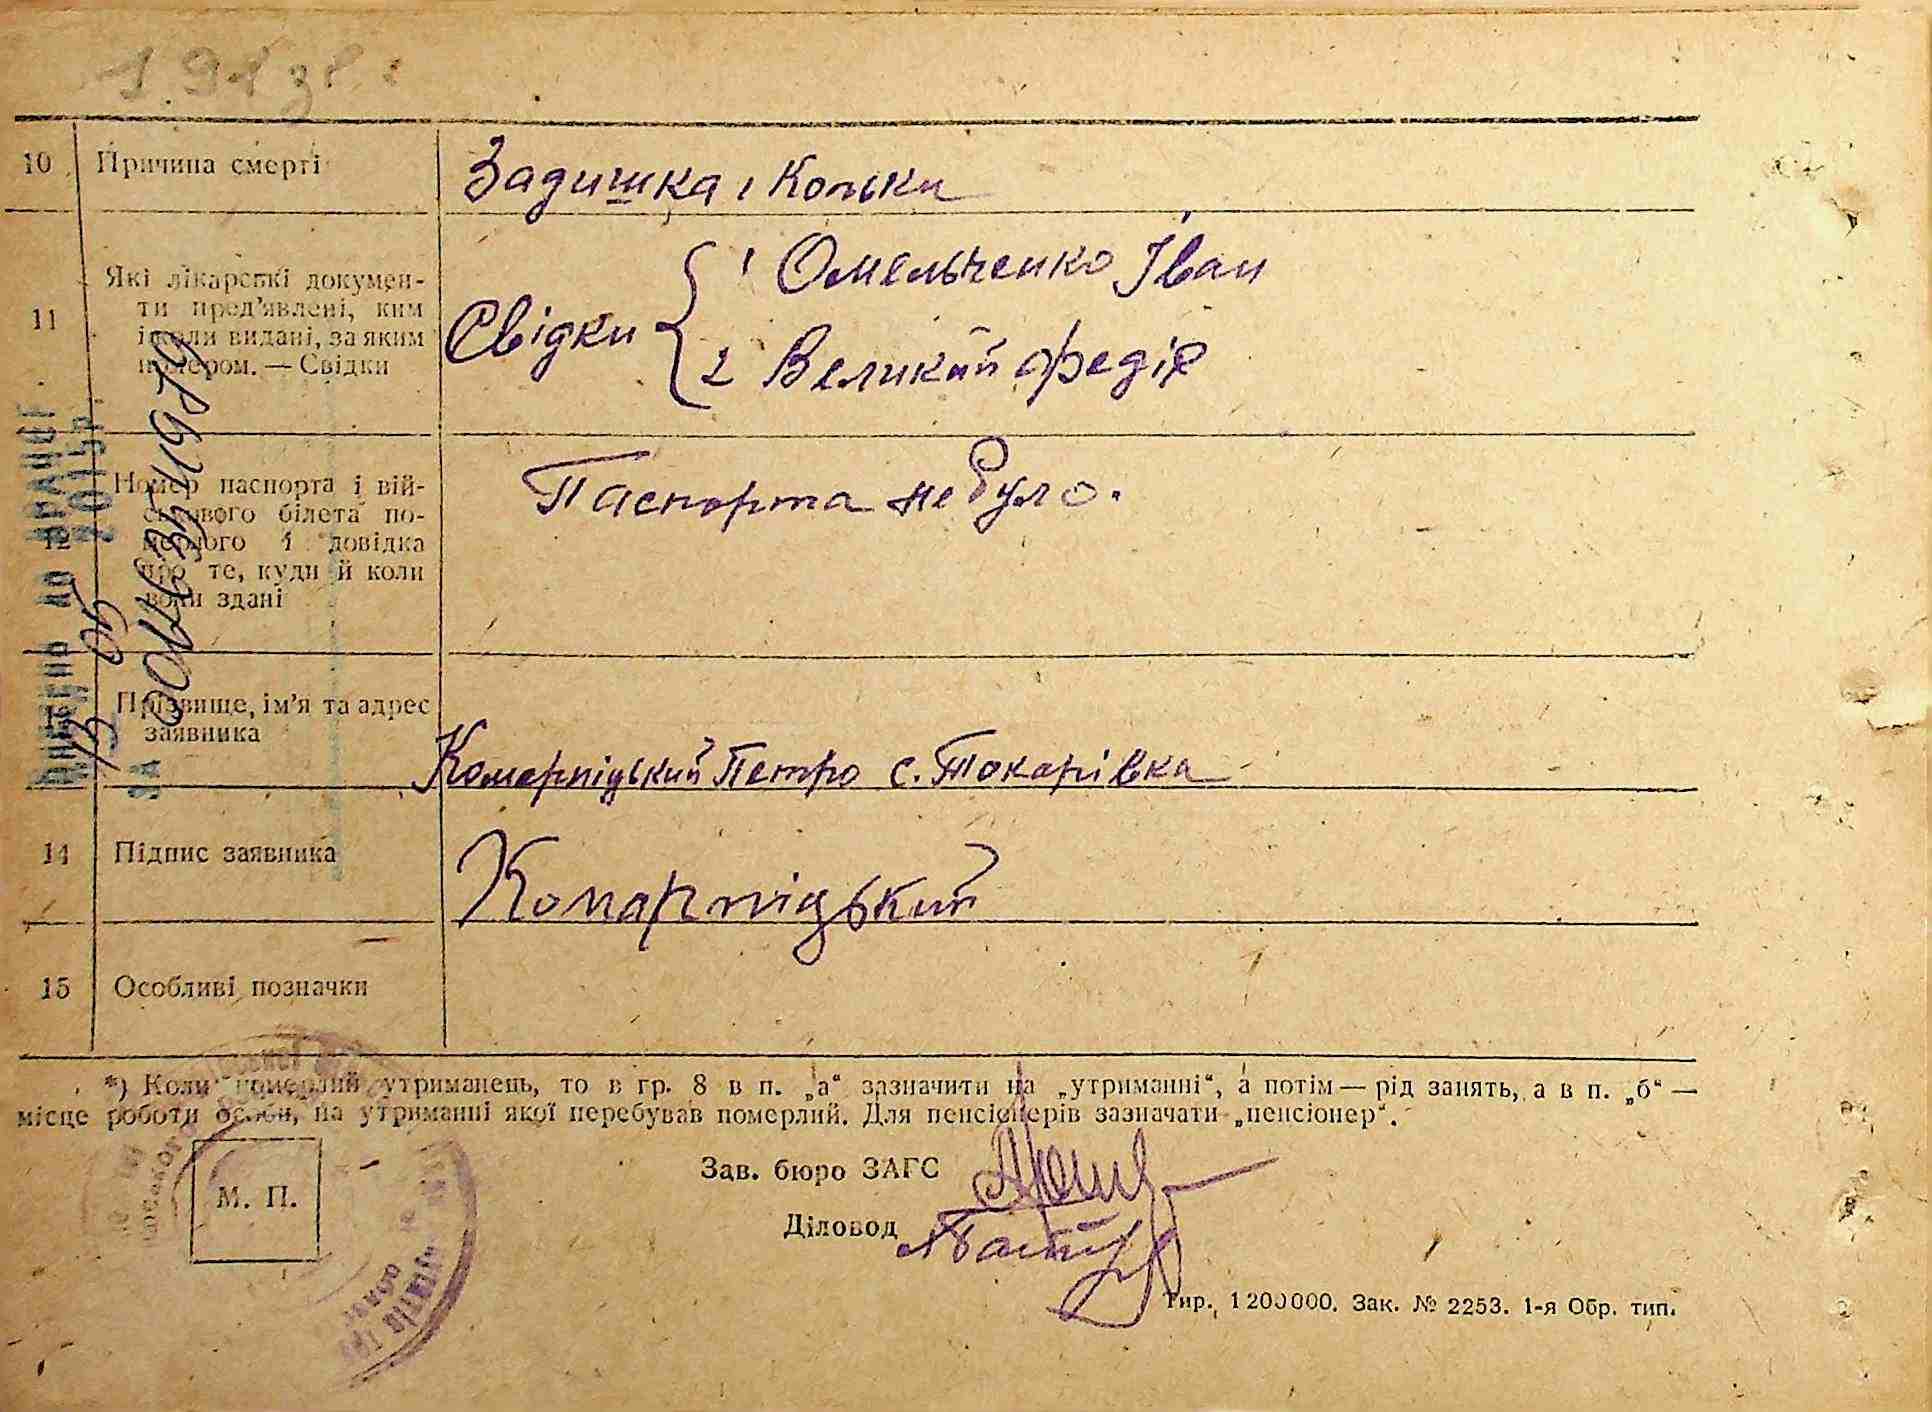 10 Причина смерті Задишка і Кольки
11 Які лікарські докумен-
ти пред'явлені, ким
і коли видані, за яким
номером. — Свідки
Свідки { 1 Омельченко Іван
2 Великий Федір
12 Номер паспорта і вій-
ськового білета по-
мерлого і довідка
про те, куди й коли
вони здані
Паспорта не було.
Прізвище, ім'я та адрес
заявника
Комарніцький Петро с. Токарівка
14 Підпис заявника Комарніцький
15 Особливі позначки
*) Коли померлий утриманець, то в гр. 8 в п. „а“ зазначити на „утриманні“, а потім — рід занять, а в п. „б“ —
місце роботи особи, на утриманні якої перебував померлий. Для пенсіонерів зазначати „пенсіонер“.
М. П.
Зав. бюро ЗАГС
Діловод
Тир. 1200000. Зак. № 2253. 1-я Обр. тип.
ЗА 00148341979
2015р.